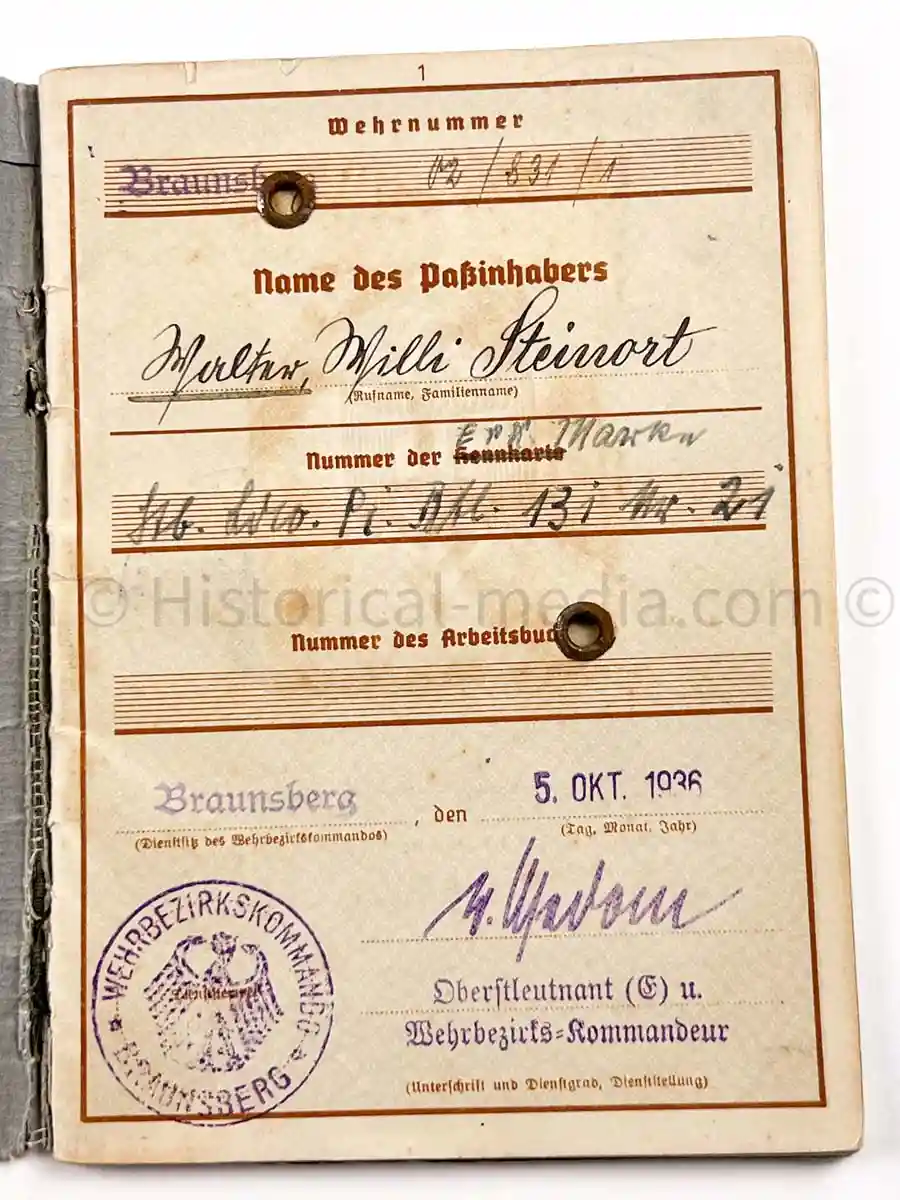 1
Wehrnummer
Braunsb 02/831/1
Name des Paßinhabers
Walter, Willi Steinort
(Rufname, Familienname)
Erk. Marke
Nummer der Kennkarte
Stb. Ldw. Pi. Btl. 131 Nr. 21
© Historical-media.com ©
Nummer des Arbeitsbuc
Braunsberg, den 5. OKT. 1936
(Dienstsitz des Wehrbezirkskommandos) (Tag, Monat, Jahr)
WEHRBEZIRKSKOMMANDO
BRAUNSBERG
Oberstleutnant (E) u.
Wehrbezirks=Kommandeur
(Unterschrift und Dienstgrad, Dienststellung)